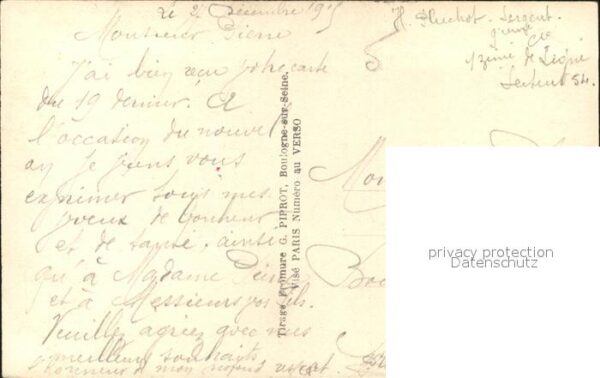 Décembre 1915
Monsieur Pierre
J'ai bien reçu votre carte
du 19 dernier. A
l'occasion du nouvel
an je viens vous
exprimer tous mes
voeux de bonheur
et de santé, ainsi
qu'à Madame Pierre
et à Messieurs vos fils.
Veuillez agréer avec mes
meilleurs souhaits
Sergent
de Ligne
Secteur 54.
Tirage G. PIPROT, Boulogne-sur-Seine.
Visé PARIS Numéro au VERSO
privacy protection
Datenschutz